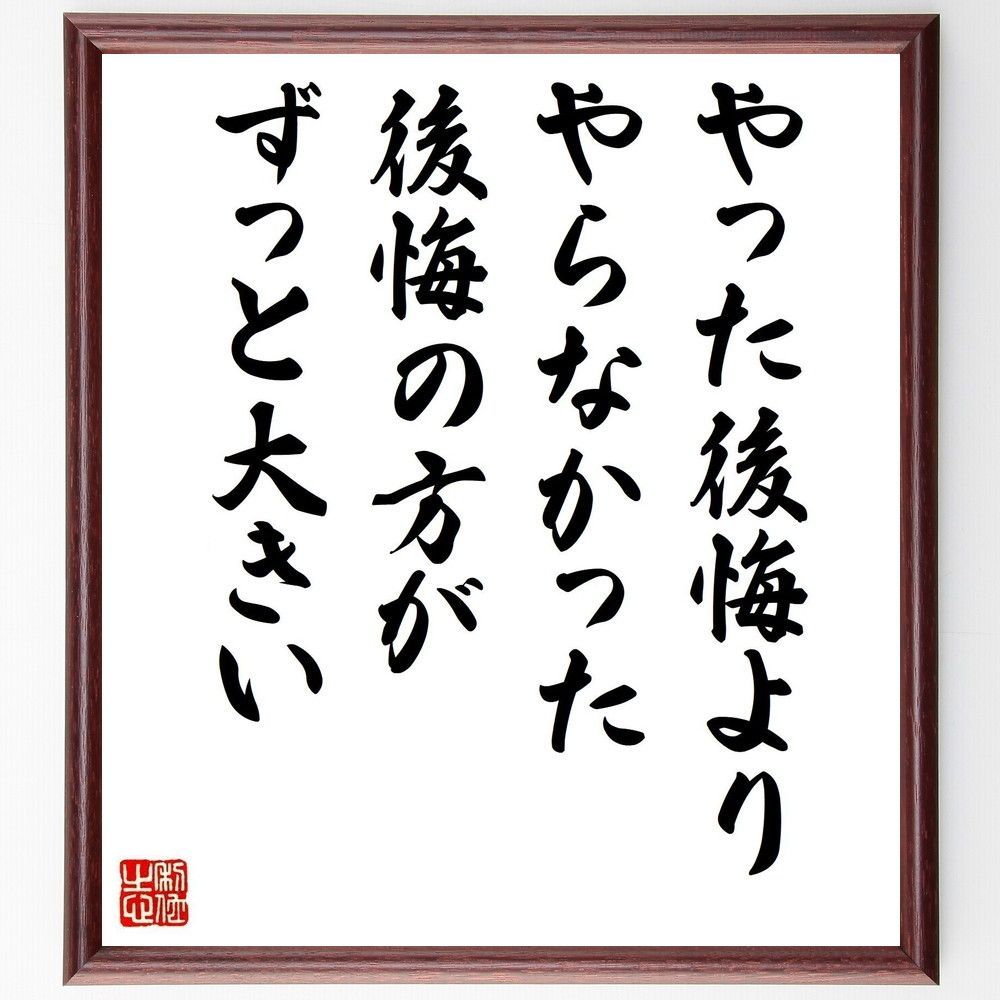 やった後悔より
やらなかった
後悔の方が
ずっと大きい